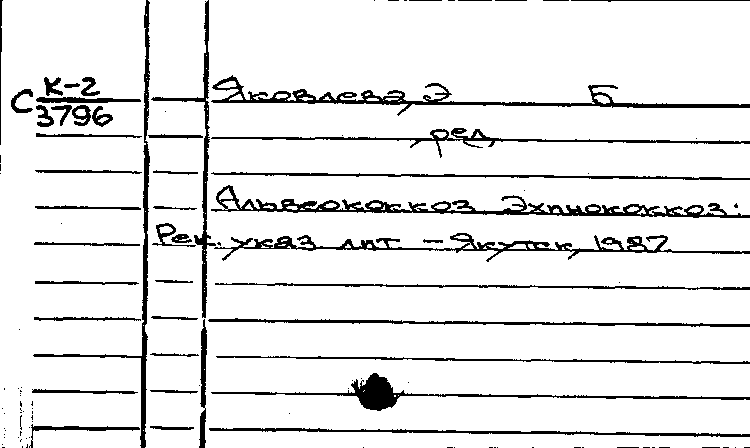 С К-2
3796
Яковлева, Э Б
, ред,
Альвеококкоз Эхинококкоз:
Рек. указ лит. - Якутск, 1987